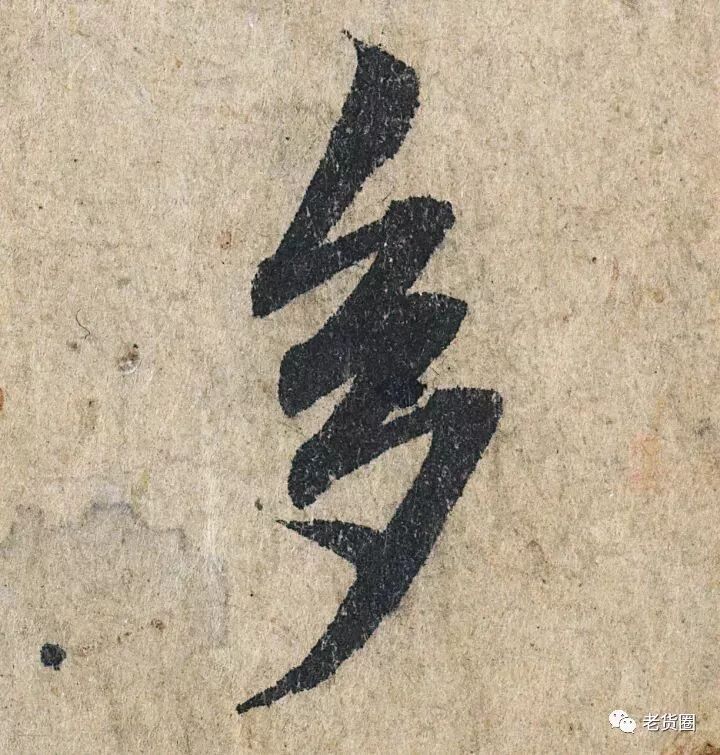 多
老货圈